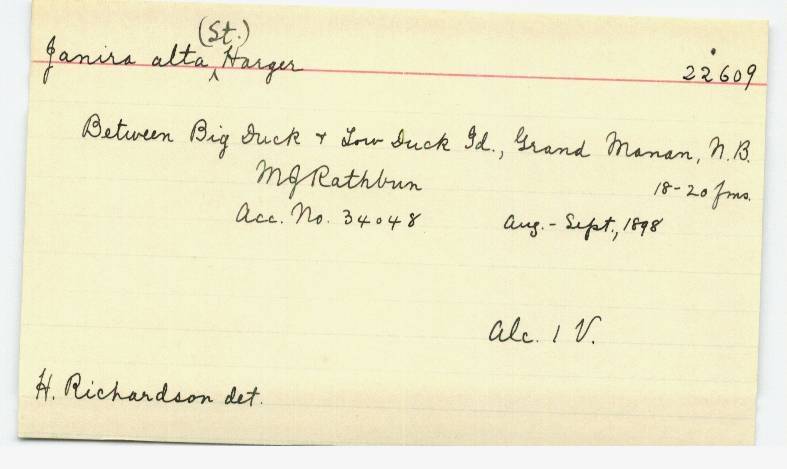 Janira alta (St.) Harger 22609
Between Big Duck + Low Duck Id., Grand Manan, N.B.
MJ Rathbun 18-20 fms.
Acc. No. 34048 Aug. - Sept., 1898
Alc. 1 V.
H. Richardson det.